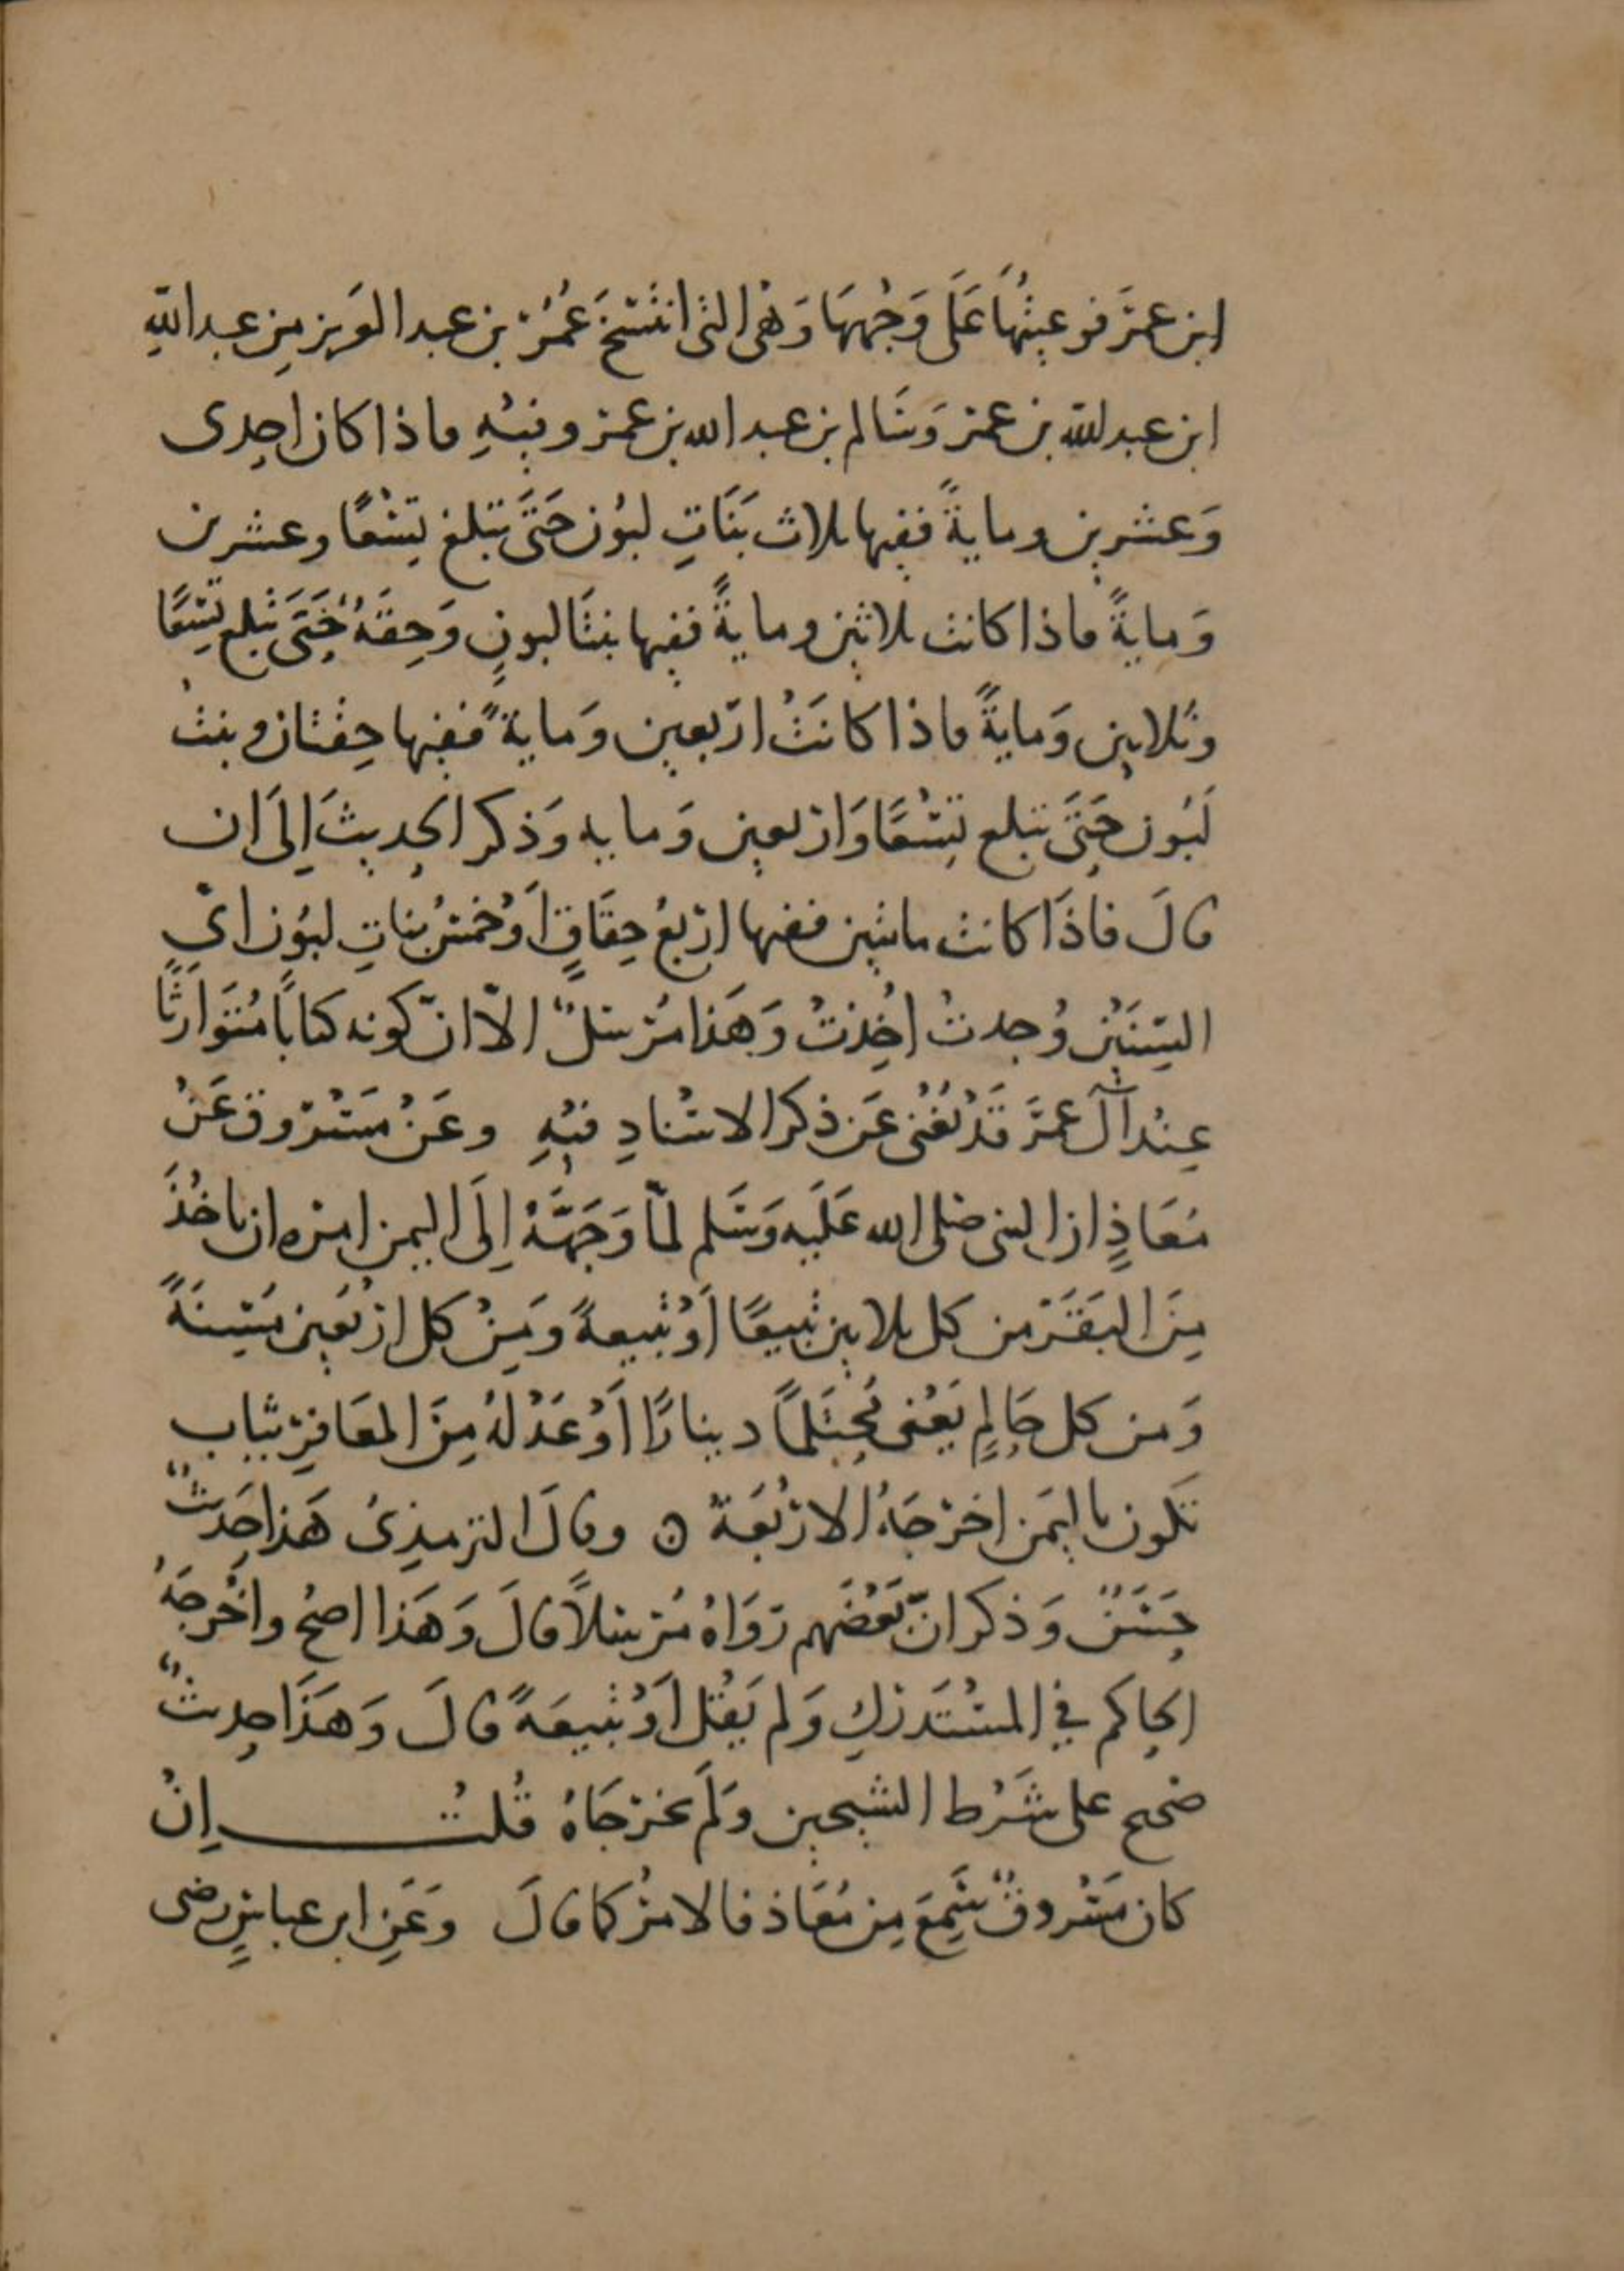 ابن عمَر فوعيتُهَا عَلَى وَجْهِهَا وَهْى التى انتَسَخَ عُمَرُ بن عبد العَزيز مِن عبد اللهِ
ابن عبد الله بن عمر وَسَالم بن عبد الله بن عمر وفيْهِ فاذا كان احِدى
وَعشرين ومايةً ففيها ثلاث بَنَاتِ لبُون حَتَّى تبلغ تِسْعًا وعشرين
وَمايةً فاذا كانت ثلاثين ومايةً ففيها بنتَا لبونٍ وَحِقَةُ حَتَّى تبلغ تِسْعًا
وثَلاثين وَمايةً فاذا كانَتْ ارَبعين وَمايةً ففيها حِقتان وبنتُ
لَبُون حَتَّى تبلغ تِسْعًا وَاربَعين وَمايه وَذكر الحديثَ اِلَى ان
قالَ فاذَا كانت مائتين ففيها ارْبعُ حِقَاقٍ اَوْ خمسُ بَناتِ لبُون اىُّ
السِنَيْن وُجدتْ اُخِذتْ وَهَذا مُرْسَلٌ الاّ انّ كونه كتابًا مُتَوَارَثًا
عِنْدَ آلَ عمَر قَدْ يُغْنى عَن ذكر الاسْنادِ فيْهِ وعَنْ مَسْرُوق عَنْ
مُعَاذٍ ان النبى صلى الله عَلَيه وَسَلم لمّا وَجَهَّهُ اِلَى اليمن امره ان ياخُذَ
مِنَ البَقَر من كل ثلاثين تَبيعًا اَوْ تبيعةً وَمِنْ كل اربَعين مُسِنةً
وَمن كل حَالِمٍ يَعْنى مُحتَلمًا دينارًا اَوْ عَدْلهُ مِنَ المعَافِرِ ثياب
تكون باليمَن اخرَجَهُ الارْبَعَة ه وقالَ الترمذِىُ هَذا حَديثٌ
حَسَنٌ وَذكر انّ بَعْضَهم رَوَاهُ مُرْسَلاً قالَ وَهَذا اصحُ واخْرجَهُ
الحاكم في المسْتَدركِ وَلم يَقُل اَوْ تَبيعَةً قالَ وَهَذَا حديثٌ
صَحيح على شَرْط الشيخين وَلَم يخرجَاهُ قُلتُ اِنْ
كان مَسْروقٌ سَمِعَ مِن مُعَاذ فالامرُ كما قالَ وَعَنِ ابن عباسٍ رضى